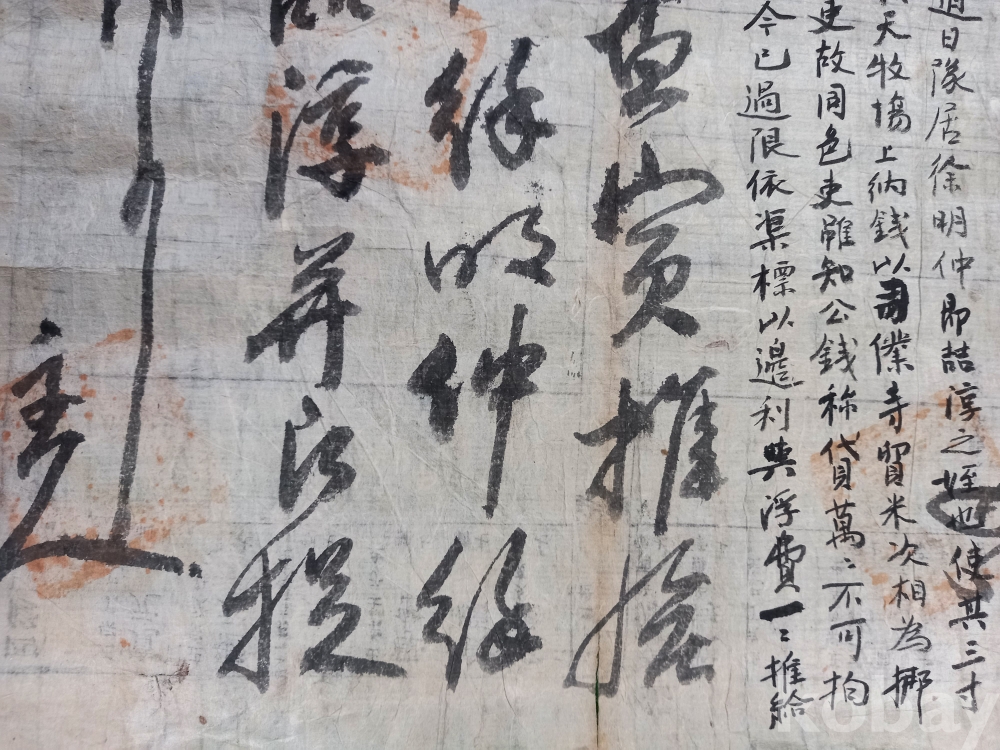 道日隊居徐明仲即喆淳之姪也使其三寸
天牧場上納錢以司僕寺貿米次相為挪
吏故同色吏雖知公錢称貸萬〻不可拘
今已過限依渠標以邊利與浮費一〻推給
實推
徐明仲徐
淳并捉
kobay